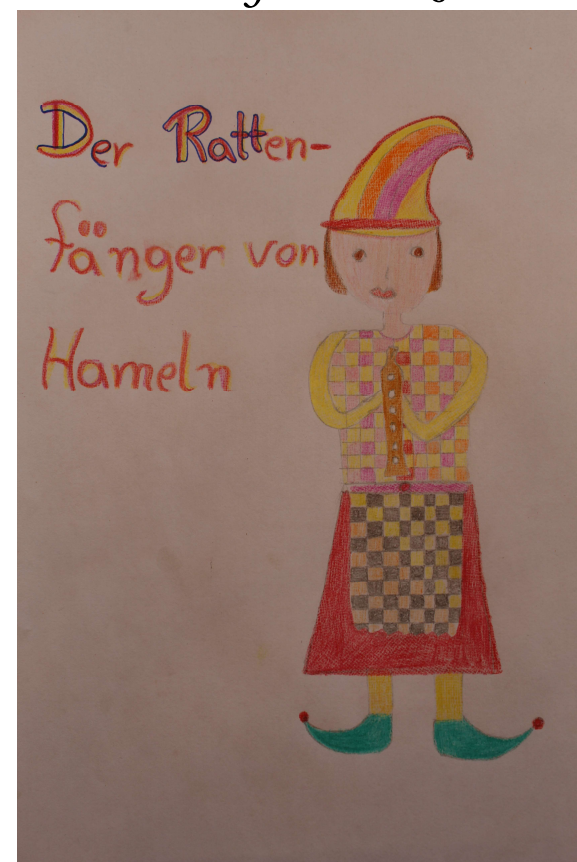 Der Ratten-
fänger von
Hameln